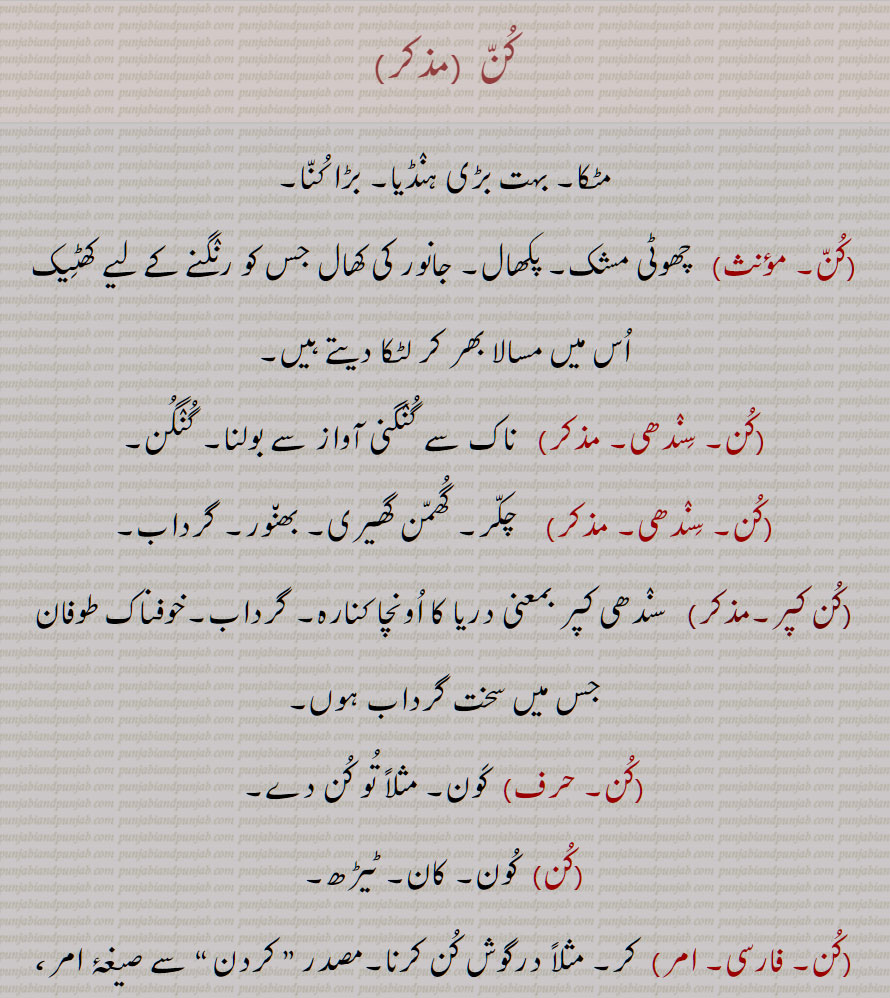 کُنّ (مذکر)
مٹکا۔ بہت بڑی ہنْڈیا۔ بڑا کُنّا۔
(کُنّ۔ مؤنث) چھوٹی مشک۔ پکھال۔ جانور کی کھال جس کو رنْگنے کے لیے کھٹِیک
اُس میں مسالا بھر کر لٹکا دیتے ہیں۔
(کُن۔ سِنْدھی۔ مذکر) ناک سے گُنْگنی آواز سے بولنا۔ گُنْگُن۔
(کُن۔ سِنْدھی۔ مذکر) چکّر۔ گُھمّن گھیری۔ بھنْور۔ گرداب۔
(کُن کپر۔مذکر) سنْدھی کپر بمعنی دریا کا اُونچا کنارہ۔ گرداب۔خوفناک طوفان
جس میں سخت گرداب ہوں۔
(کُن۔ حرف) کَون۔ مثلاً تُو کُن دے۔
(کُن) کُون۔ کان۔ ٹیڑھ۔
(کُن۔ فارسی۔ امر) کر۔ مثلاً درگوش کُن کرنا۔مصدر ”کردن“ سے صیغۂ امر،
punjabiandpunjab.com